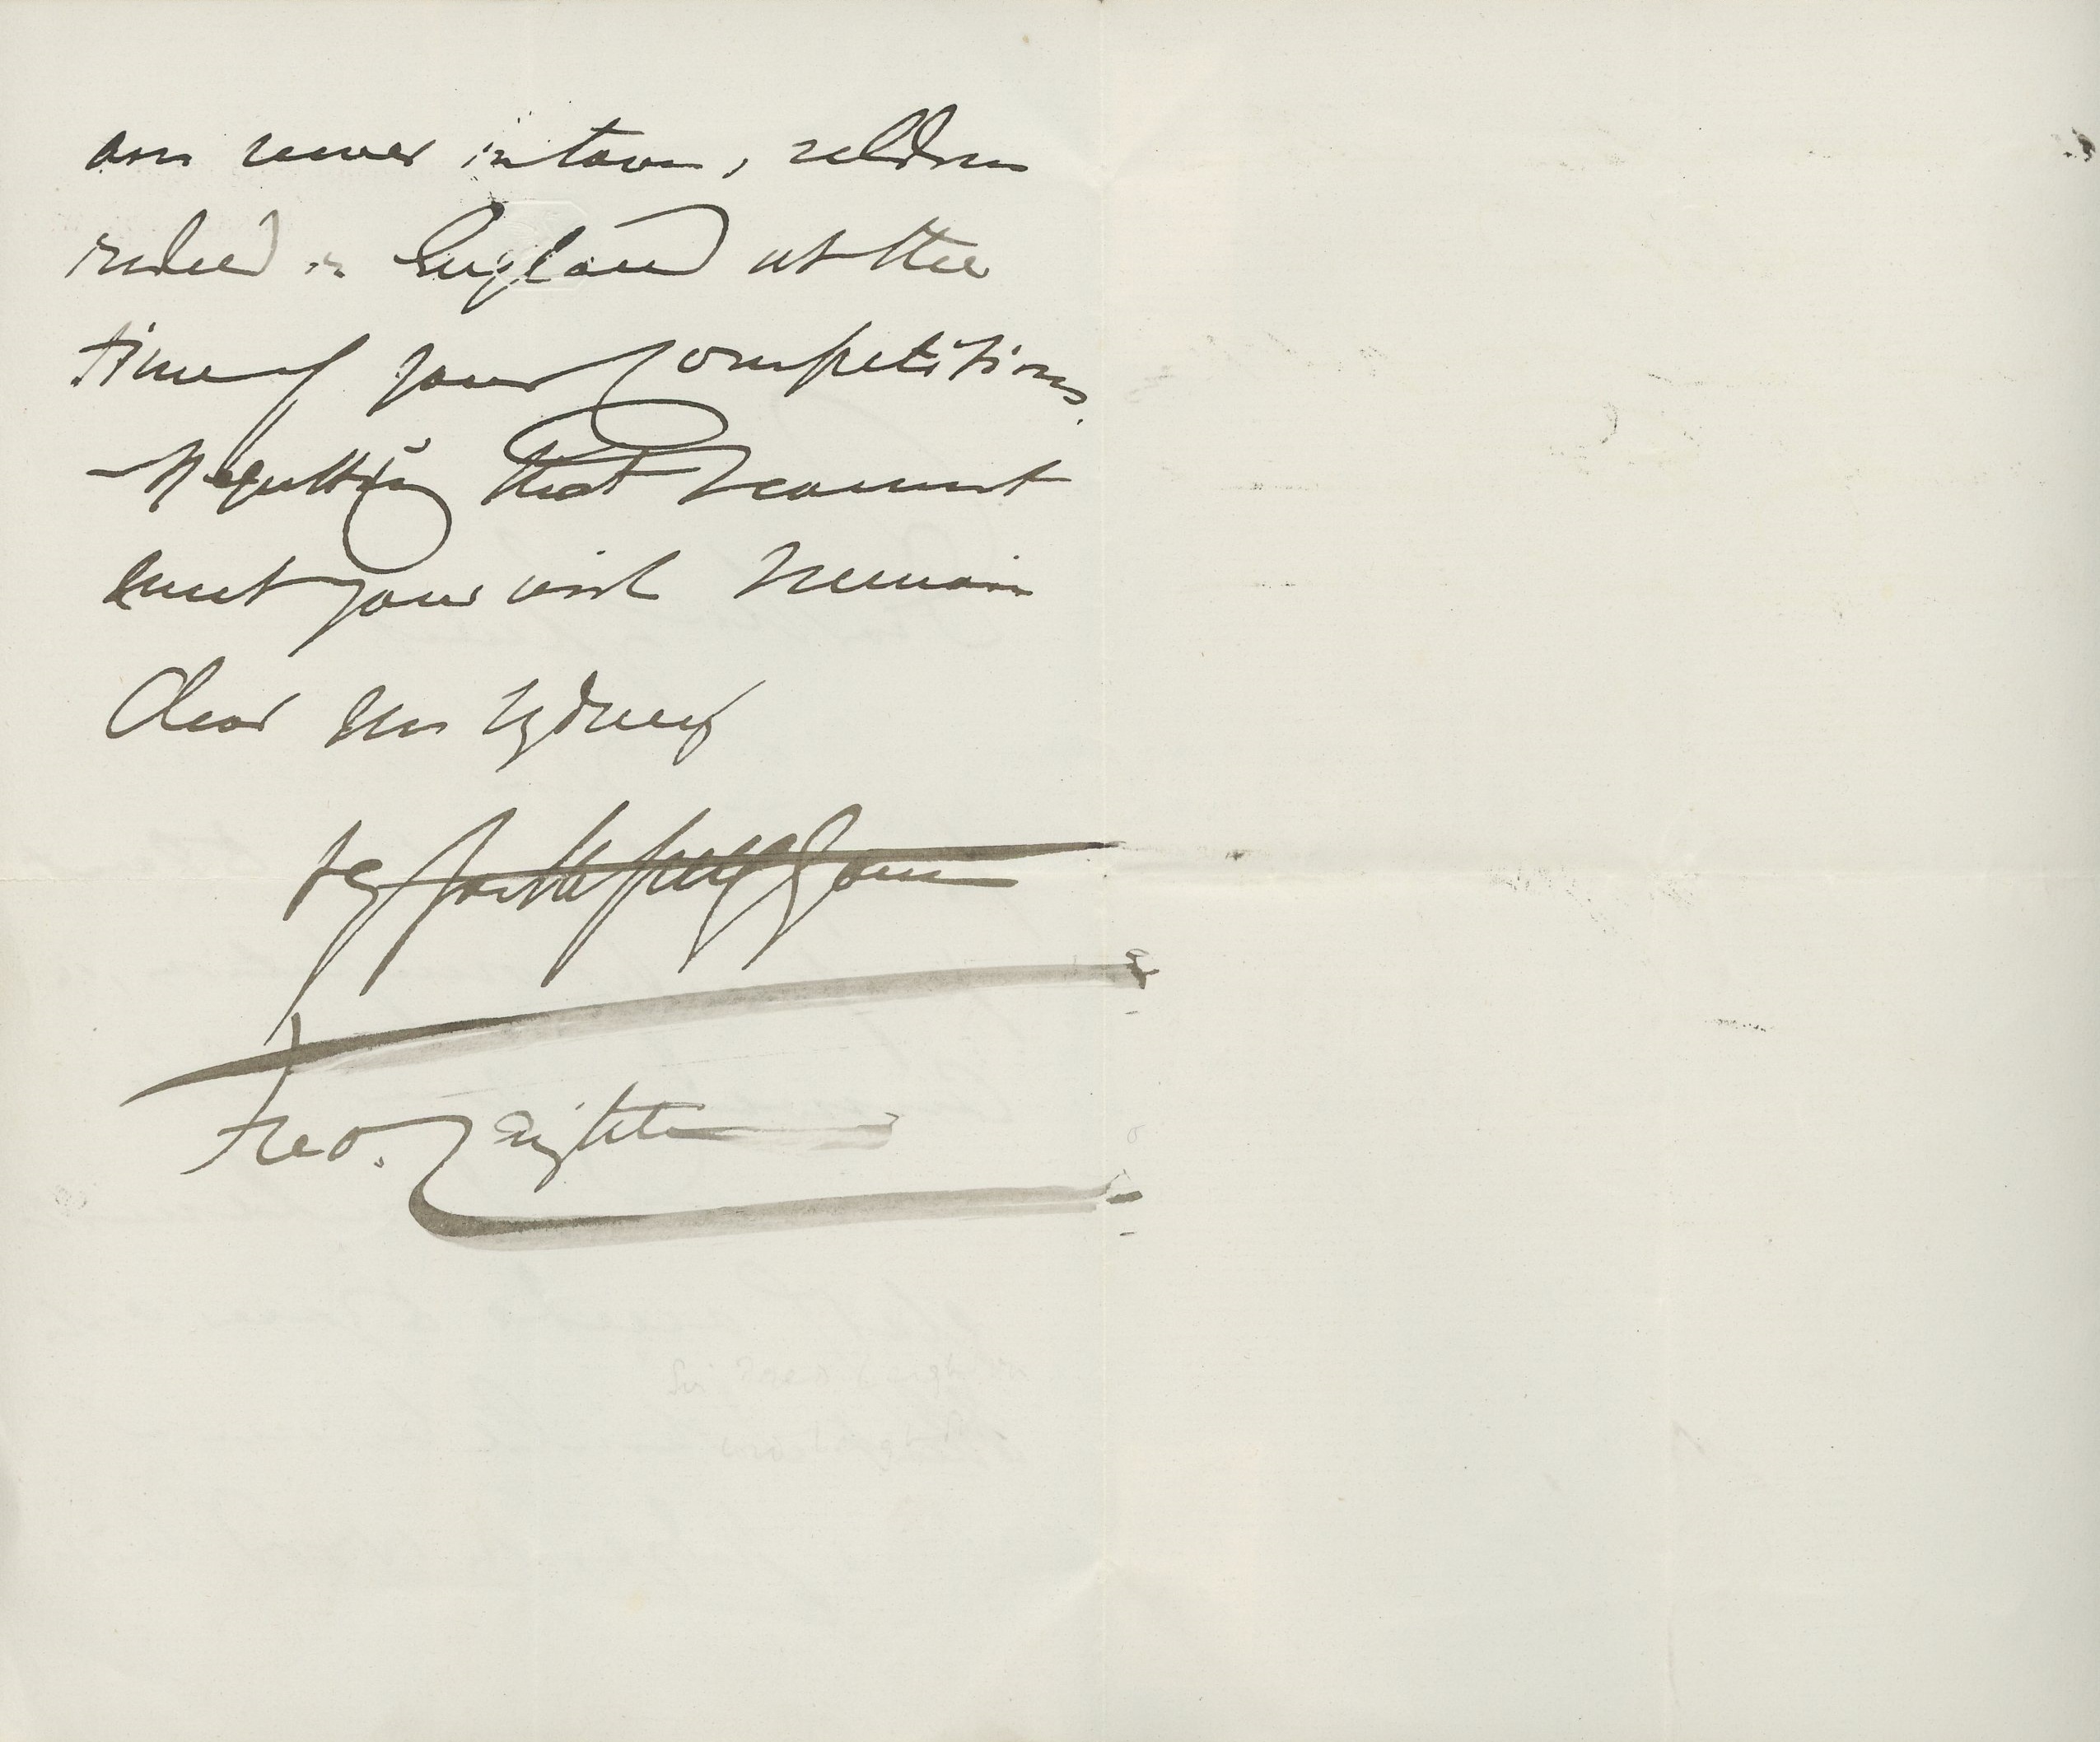 am never in town, seldom
indeed in England at the
time of your Competitions.
– Regretting that I cannot
meet your wish I remain
dear Mr Sydney
Yrs faithfully
Fred. Leighton
Sir Fred Leighton